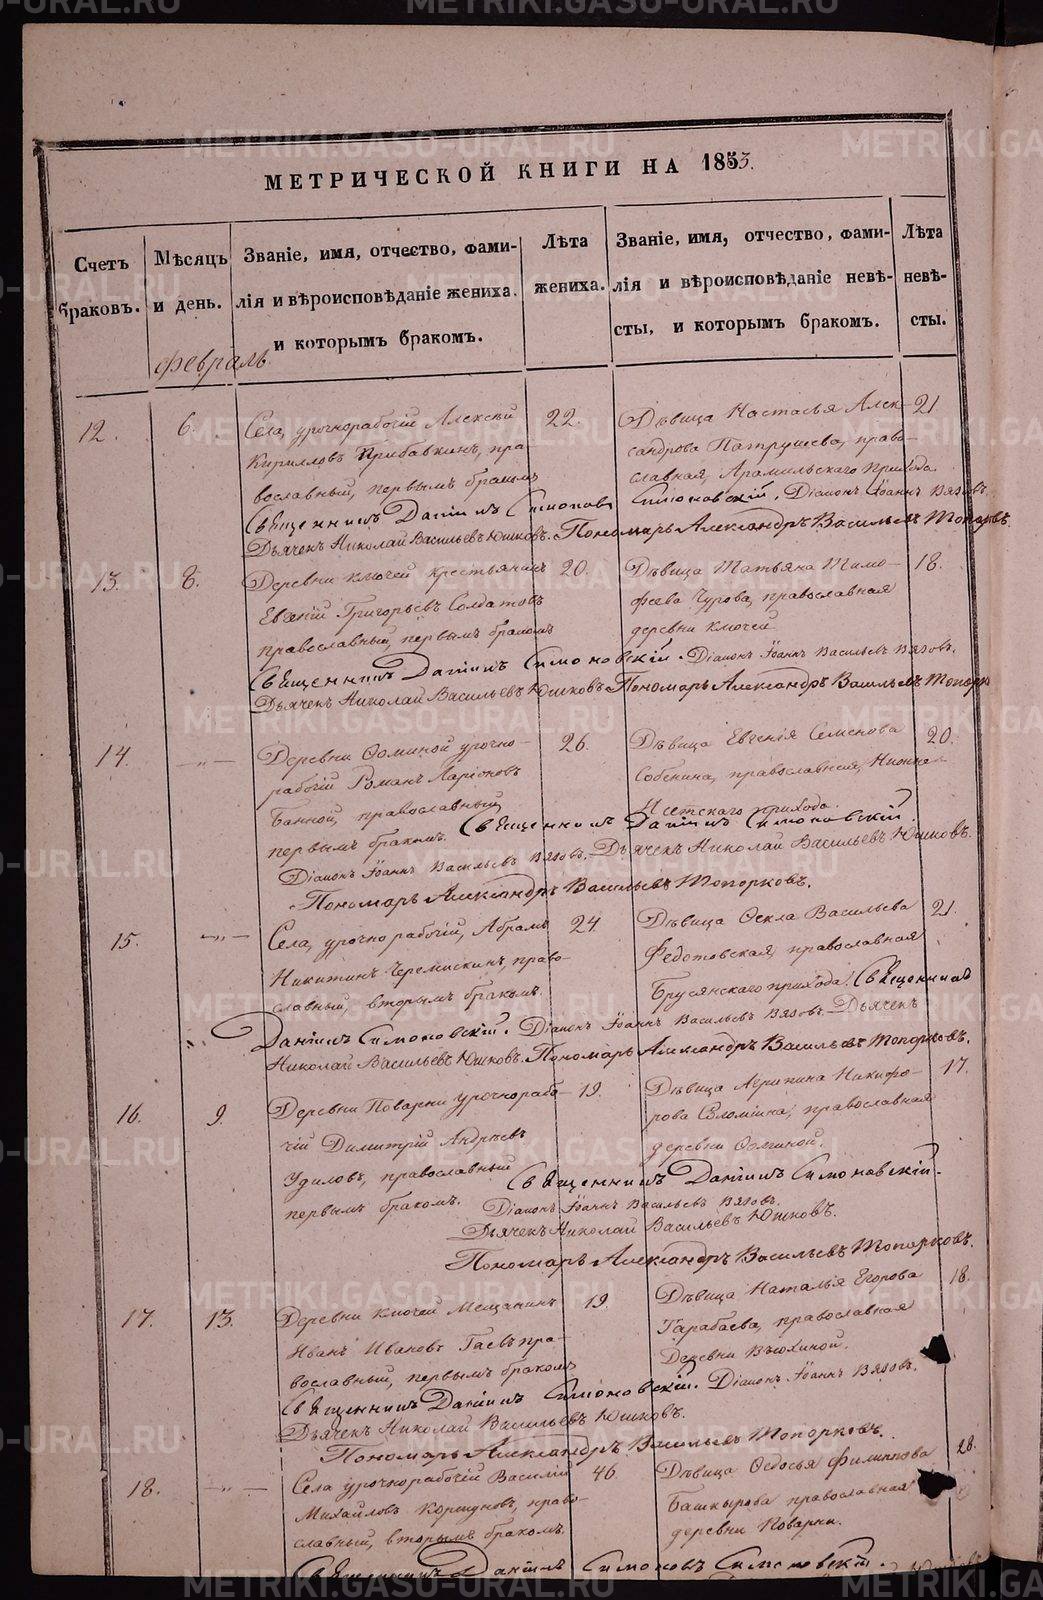 МЕТРИЧЕСКОЙ КНИГИ НА 1853.
Счетъ браковъ.
Мѣсяцъ и день.
Званіе, имя, отчество, фами-
лія и вѣроисповѣданіе жениха.
и которымъ бракомъ.
Лѣта жениха.
Званіе, имя, отчество, фами-
лія и вѣроисповѣданіе невѣ-
сты, и которымъ бракомъ.
Лѣта невѣ-
сты.
Февраль
12. 6. Села, урочнорабочій Алексѣй 22. Дѣвица Настасья Алек- 21
Кирилловъ Прибавкинъ, пра- сандрова Патрушева, право-
вославный, первымъ бракомъ славная, Арамильскаго прихода
Священникъ Даніилъ Симоновскій. Діаконъ Іоаннъ Вязовъ.
Дьячекъ Николай Васильевъ Юшковъ. Пономарь Александръ Васильевъ Топорковъ.
13. 8. Деревни Ключей крестьянинъ 20. Дѣвица Татьяна Тимо- 18.
Евгеній Григорьевъ Солдатовъ феева Чурова, православная
православный, первымъ бракомъ деревни Ключей
Священникъ Даніилъ Симоновскій. Діаконъ Іоаннъ Васильевъ Вязовъ.
Дьячекъ Николай Васильевъ Юшковъ Пономарь Александръ Васильевъ Топорк
14. —„— Деревни Осминой урочно- 26. Дѣвица Евгенія Семенова 20.
рабочій Романъ Ларіоновъ Собенина, православная, Нижне-
Банной, православный, Исетскаго прихода.
первымъ бракомъ. Священникъ Даніилъ Симоновскій.
Діаконъ Іоаннъ Васильевъ Вязовъ. Дьячекъ Николай Васильевъ Юшковъ.
Пономарь Александръ Васильевъ Топорковъ.
15. —„— Села, урочно рабочій, Абрамъ 24 Дѣвица Ѳекла Васильева 21.
Никитинъ Черемискинъ, право- Федотовская, православная
славный, вторымъ бракомъ. Брусянскаго прихода. Священникъ
Даніилъ Симоновскій. Діаконъ Іоаннъ Васильевъ Вязовъ. Дьячекъ
Николай Васильевъ Юшковъ. Пономарь Александръ Васильевъ Топорковъ.
16. 9. Деревни Поварни урочнорабо- 19. Дѣвица Агрипина Никифо- 17.
чій Димитрій Андреевъ рова православная
Удиловъ, православный деревни Осминой.
первымъ бракомъ. Священникъ Даніилъ Симоновскій.
Діаконъ Іоаннъ Васильевъ Вязовъ.
Дьячекъ Николай Васильевъ Юшковъ.
Пономарь Александръ Васильевъ Топорковъ.
17. 13. Деревни Ключей Мещанинъ 19. Дѣвица Наталья Егорова 18.
Иванъ Ивановъ Гаевъ пра- Тарабаева, православная
вославный, первымъ бракомъ Деревни Вьюхиной.
Священникъ Даніилъ Симоновскій. Діаконъ Іоаннъ Вязовъ.
Дьячекъ Николай Васильевъ Юшковъ.
Пономарь Александръ Васильевъ Топорковъ.
18. —„— Села урочнорабочій Василій 46. Дѣвица Ѳедосья Филиппова 28.
Михайловъ Коршуновъ, право- Башкырова православная
славный, вторымъ бракомъ. деревни Поварни.
Священникъ Даніилъ Симоновъ Симоновскій.
METRIKI.GASO-URAL.RU